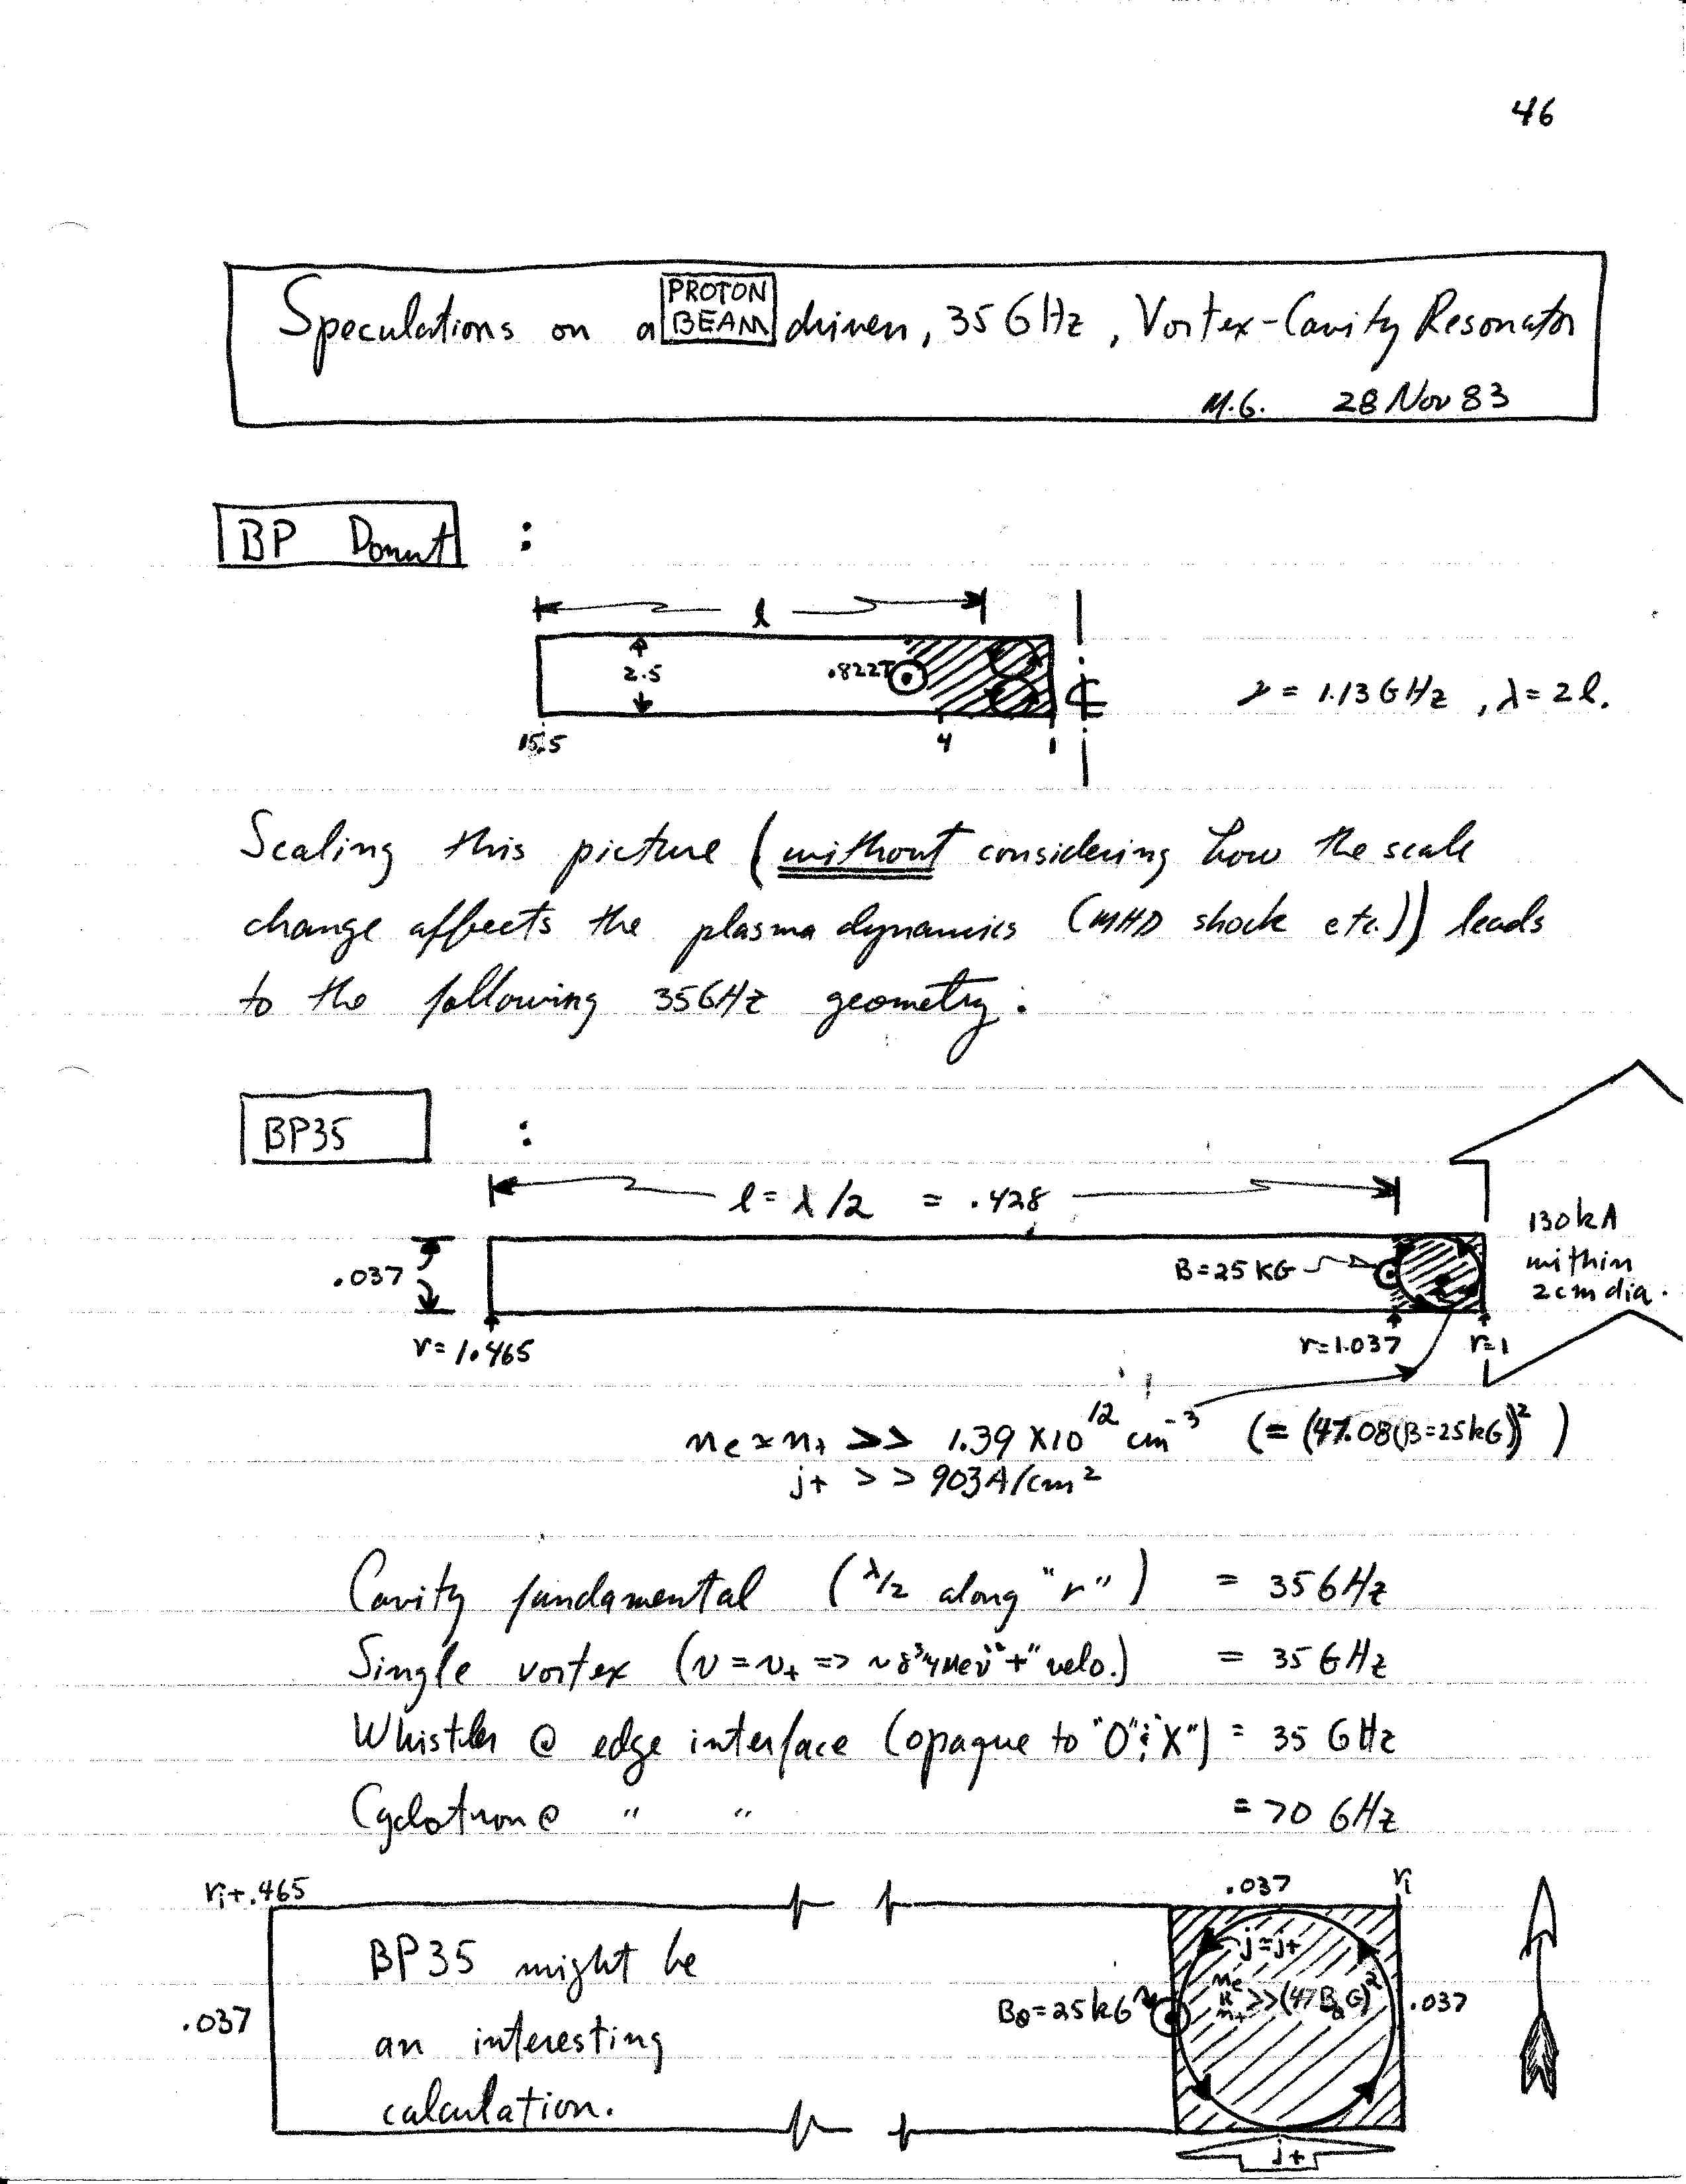 46
Speculations on a PROTON BEAM driven, 35 GHz, Vortex-Cavity Resonator
M.G. 28 Nov 83
BP Donut :
l
2.5
.822T
℄
ν = 1.13 GHz, λ = 2l.
15.5 4 1
Scaling this picture (without considering how the scale
change affects the plasma dynamics (MHD shock etc.)) leads
to the following 35GHz geometry:
BP35 :
l = λ/2 = .428
130kA
within
2cm dia.
.037
B=25 KG
r=1.465
r=1.037
r=1
ne ≈ n+ >> 1.39 X10^12 cm^-3 (= (47.08(B=25kG))^2)
j+ >> 903A/cm^2
Cavity fundamental (λ/2 along "r") = 35GHz
Single vortex (v = v+ => velo.) = 35 GHz
Whistler @ edge interface (opaque to "O" & "X") = 35 GHz
Cyclotron @ " " = 70 GHz
ri+.465
.037
ri
BP35 might be
an interesting
calculation.
.037
Bθ=25kG
j=j+
ne ≈ n+ >> (47 Bθ G)^2
.037
j+